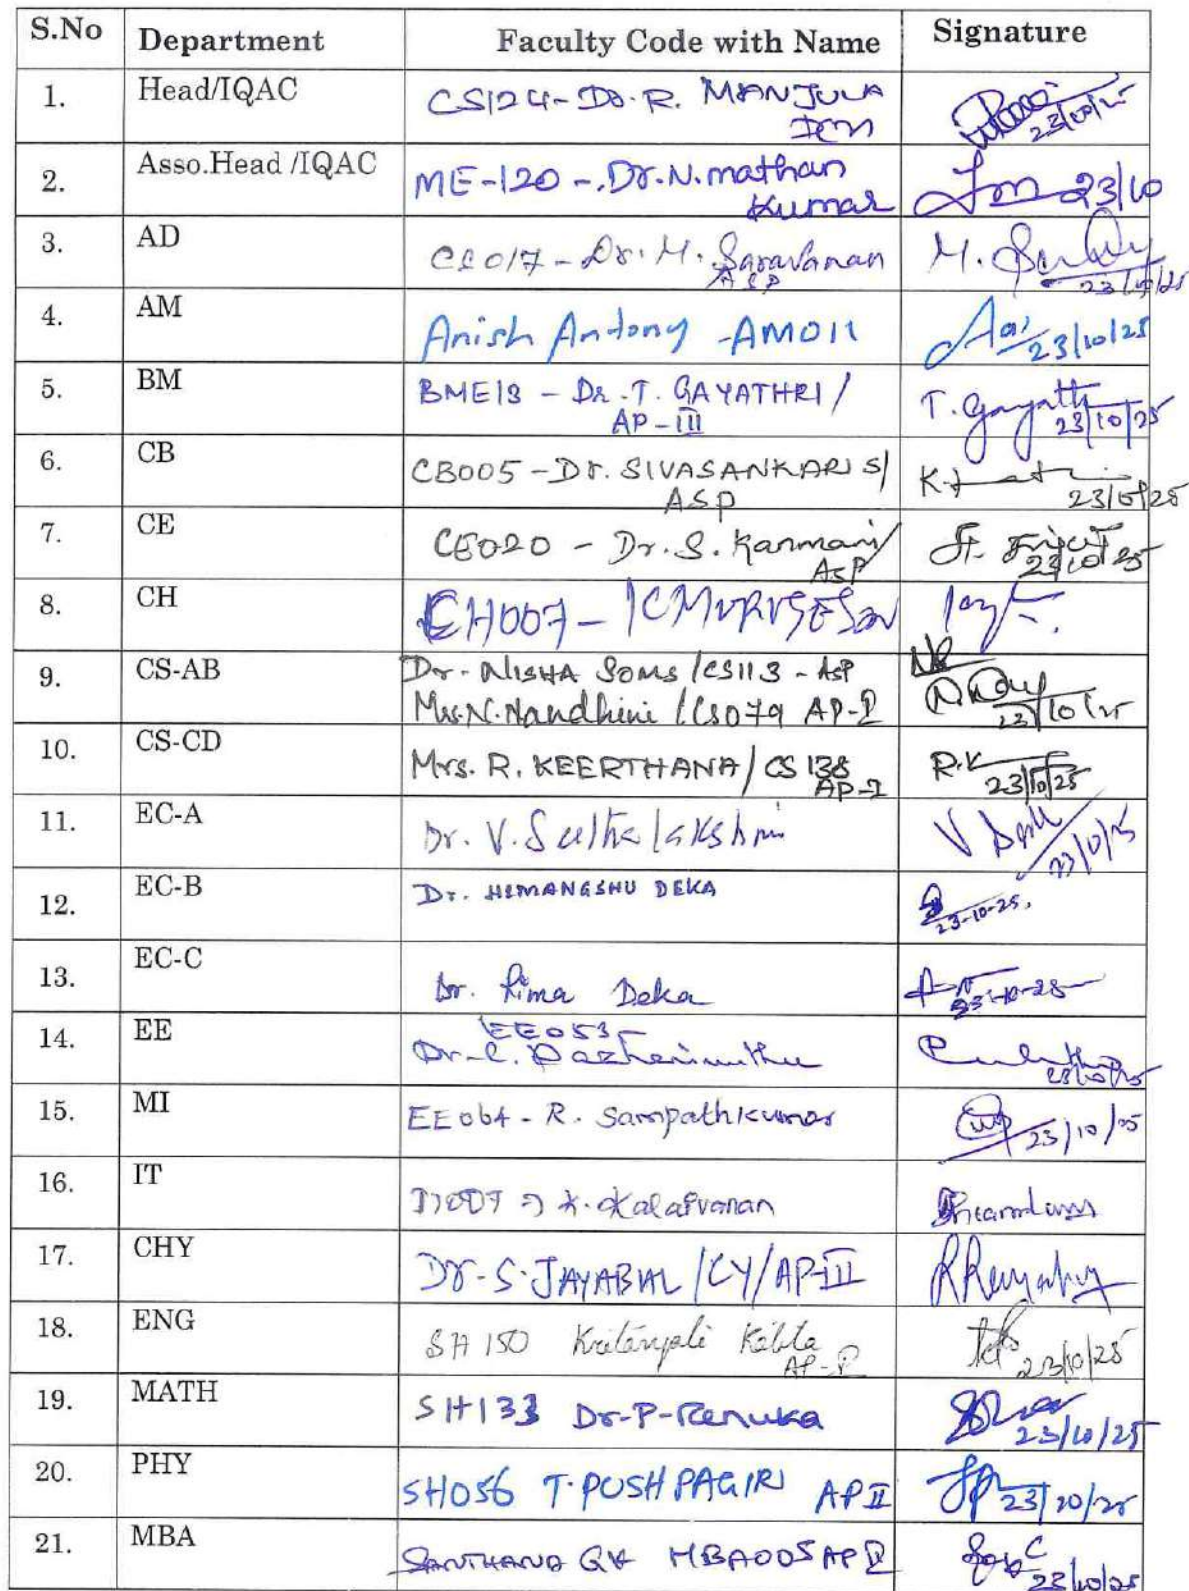 S.No Department Faculty Code with Name Signature
1. Head/IQAC CS124-Dr.R. MANJULA
23/10/25
2. Asso.Head /IQAC ME-120 -.Dr.N.mathan
Kumar 23/10
3. AD CS017-Dr.M. Saravanan M.
ASP 23/10/25
4. AM Anish Antony -AM011 23/10/25
5. BM BME13 - Dr.T. GAYATHRI / T. Gayathri
AP-III 23/10/25
6. CB CB005-Dr. SIVASANKARI S/
ASP 23/10/25
7. CE CE020 - Dr.S. Kanmani/
ASP 23/10/25
8. CH CH007-
9. CS-AB Dr. NISHA SOMS /CS113 - ASP
Mrs.N.Nandhini /CS079 AP-I 23/10/25
10. CS-CD Mrs. R. KEERTHANA/ CS 138 R.K
AP-I 23/10/25
11. EC-A Dr. V. 23/10/25
12. EC-B Dr. HIMANGSHU DEKA
23-10-25.
13. EC-C Dr. Rima Deka
23-10-25
14. EE EE053-
Dr-C. Pazhanimuthu
23/10/25
15. MI EE064- R. Sampathkumar 23/10/25
16. IT K. Kalaivanan
17. CHY Dr-S. JAYABAL /CY/AP-III
18. ENG SH 150 Kritanjali
23/10/25
19. MATH SH133 Dr-P-Renuka
23/10/25
20. PHY SH056 T.PUSHPAGIRI AP II 23/10/25
21. MBA SANTHANA MBA005 AP
23/10/25